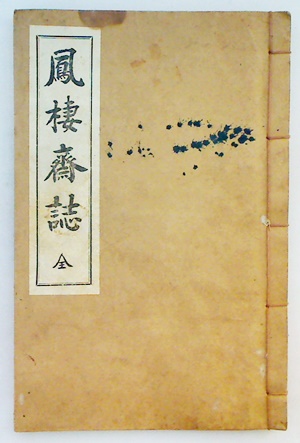 鳳棲齋誌 全